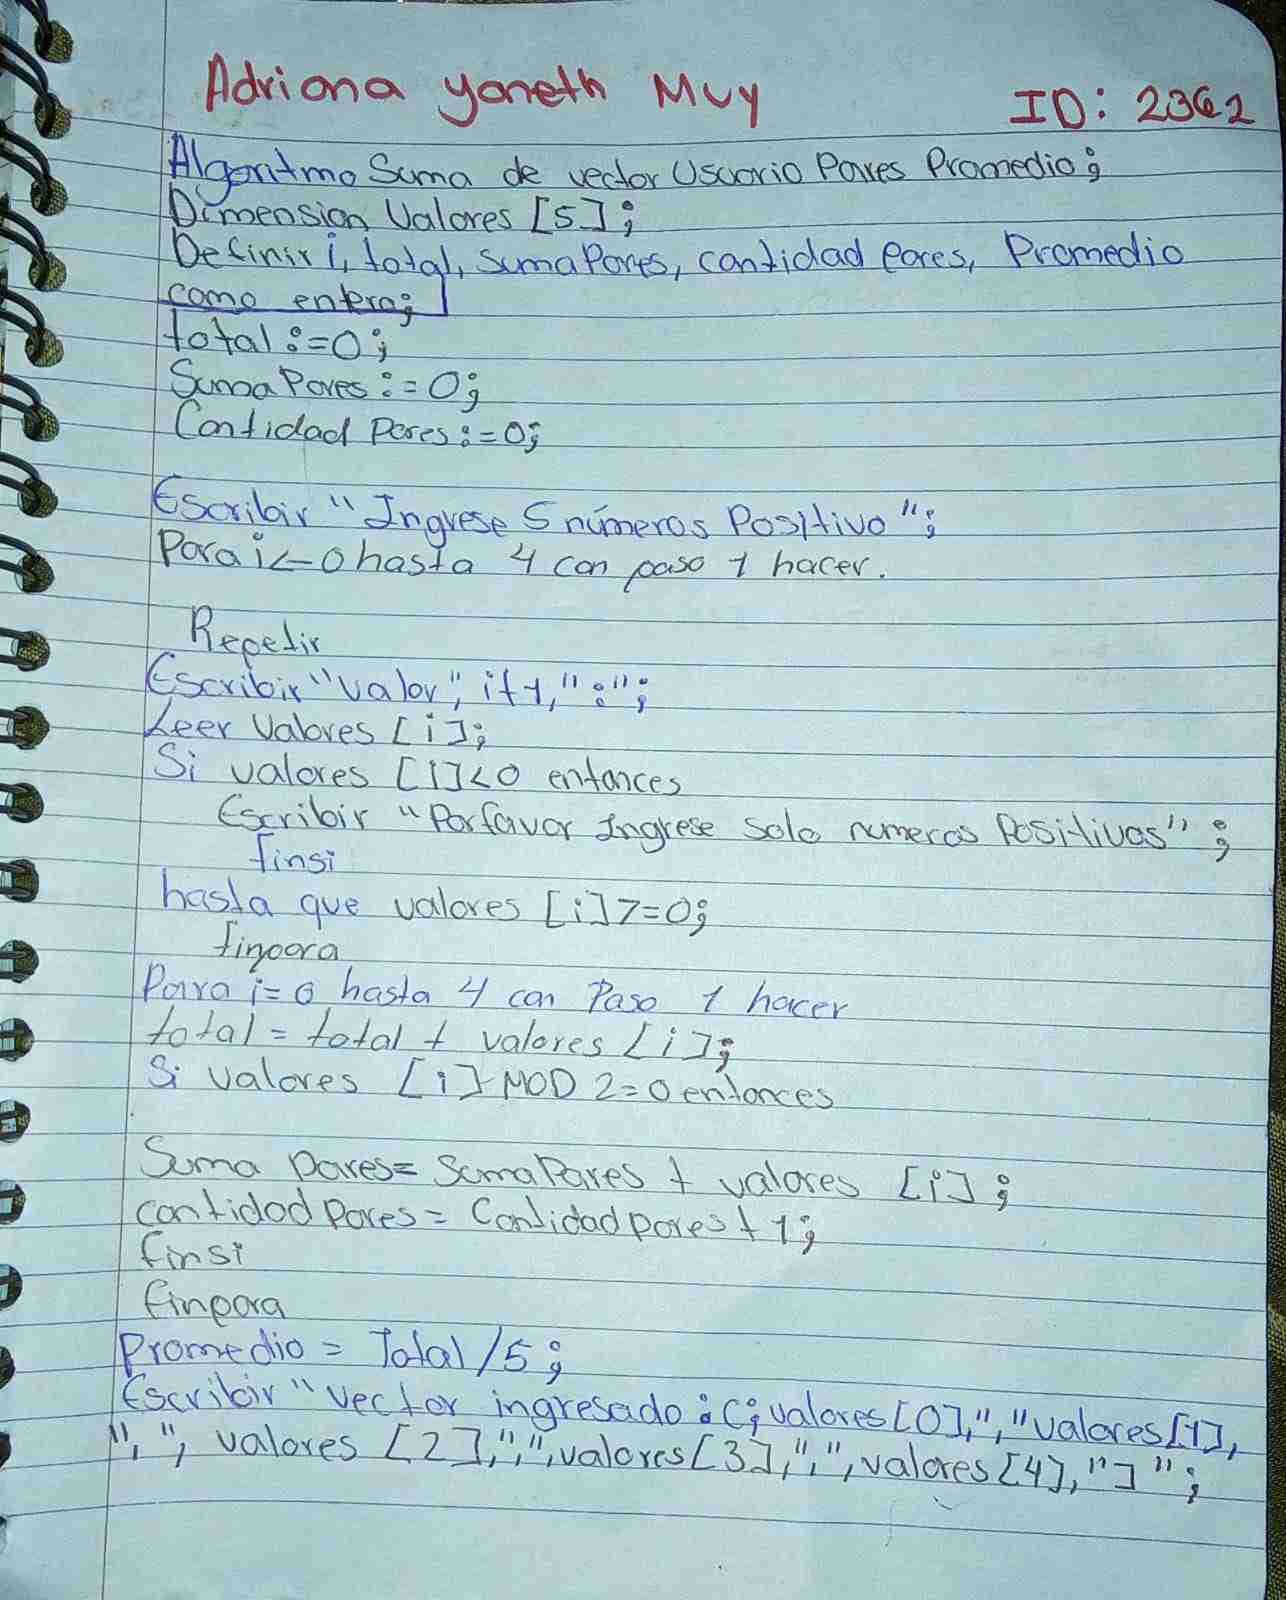 Adriana yaneth Muy ID: 2362
Algoritmo Suma de vector Usuario Pares Promedio;
Dimension Valores [5];
Definir i, total, suma Pares, cantidad Pares, Promedio
como entero;
total := 0;
Suma Pares := 0;
Cantidad Pares := 0;
Escribir "Ingrese 5 números Positivo";
Para i <- 0 hasta 4 con paso 1 hacer.
Repetir
Escribir "valor", i+1, ":";
Leer Valores [i];
Si valores [i]<0 entonces
Escribir "Por favor Ingrese solo numeros Positivos";
finsi
hasta que valores [i]>=0;
finpara
Para i=0 hasta 4 con Paso 1 hacer
total = total + valores [i];
Si valores [i] MOD 2=0 entonces
Suma Pares = Suma Pares + valores [i];
cantidad Pares = Cantidad pares + 1;
finsi
finpara
Promedio = Total /5;
Escribir "vector ingresado : C; valores [0],","valores [1],
",", valores [2],",", valores [3],",", valores [4], "]";